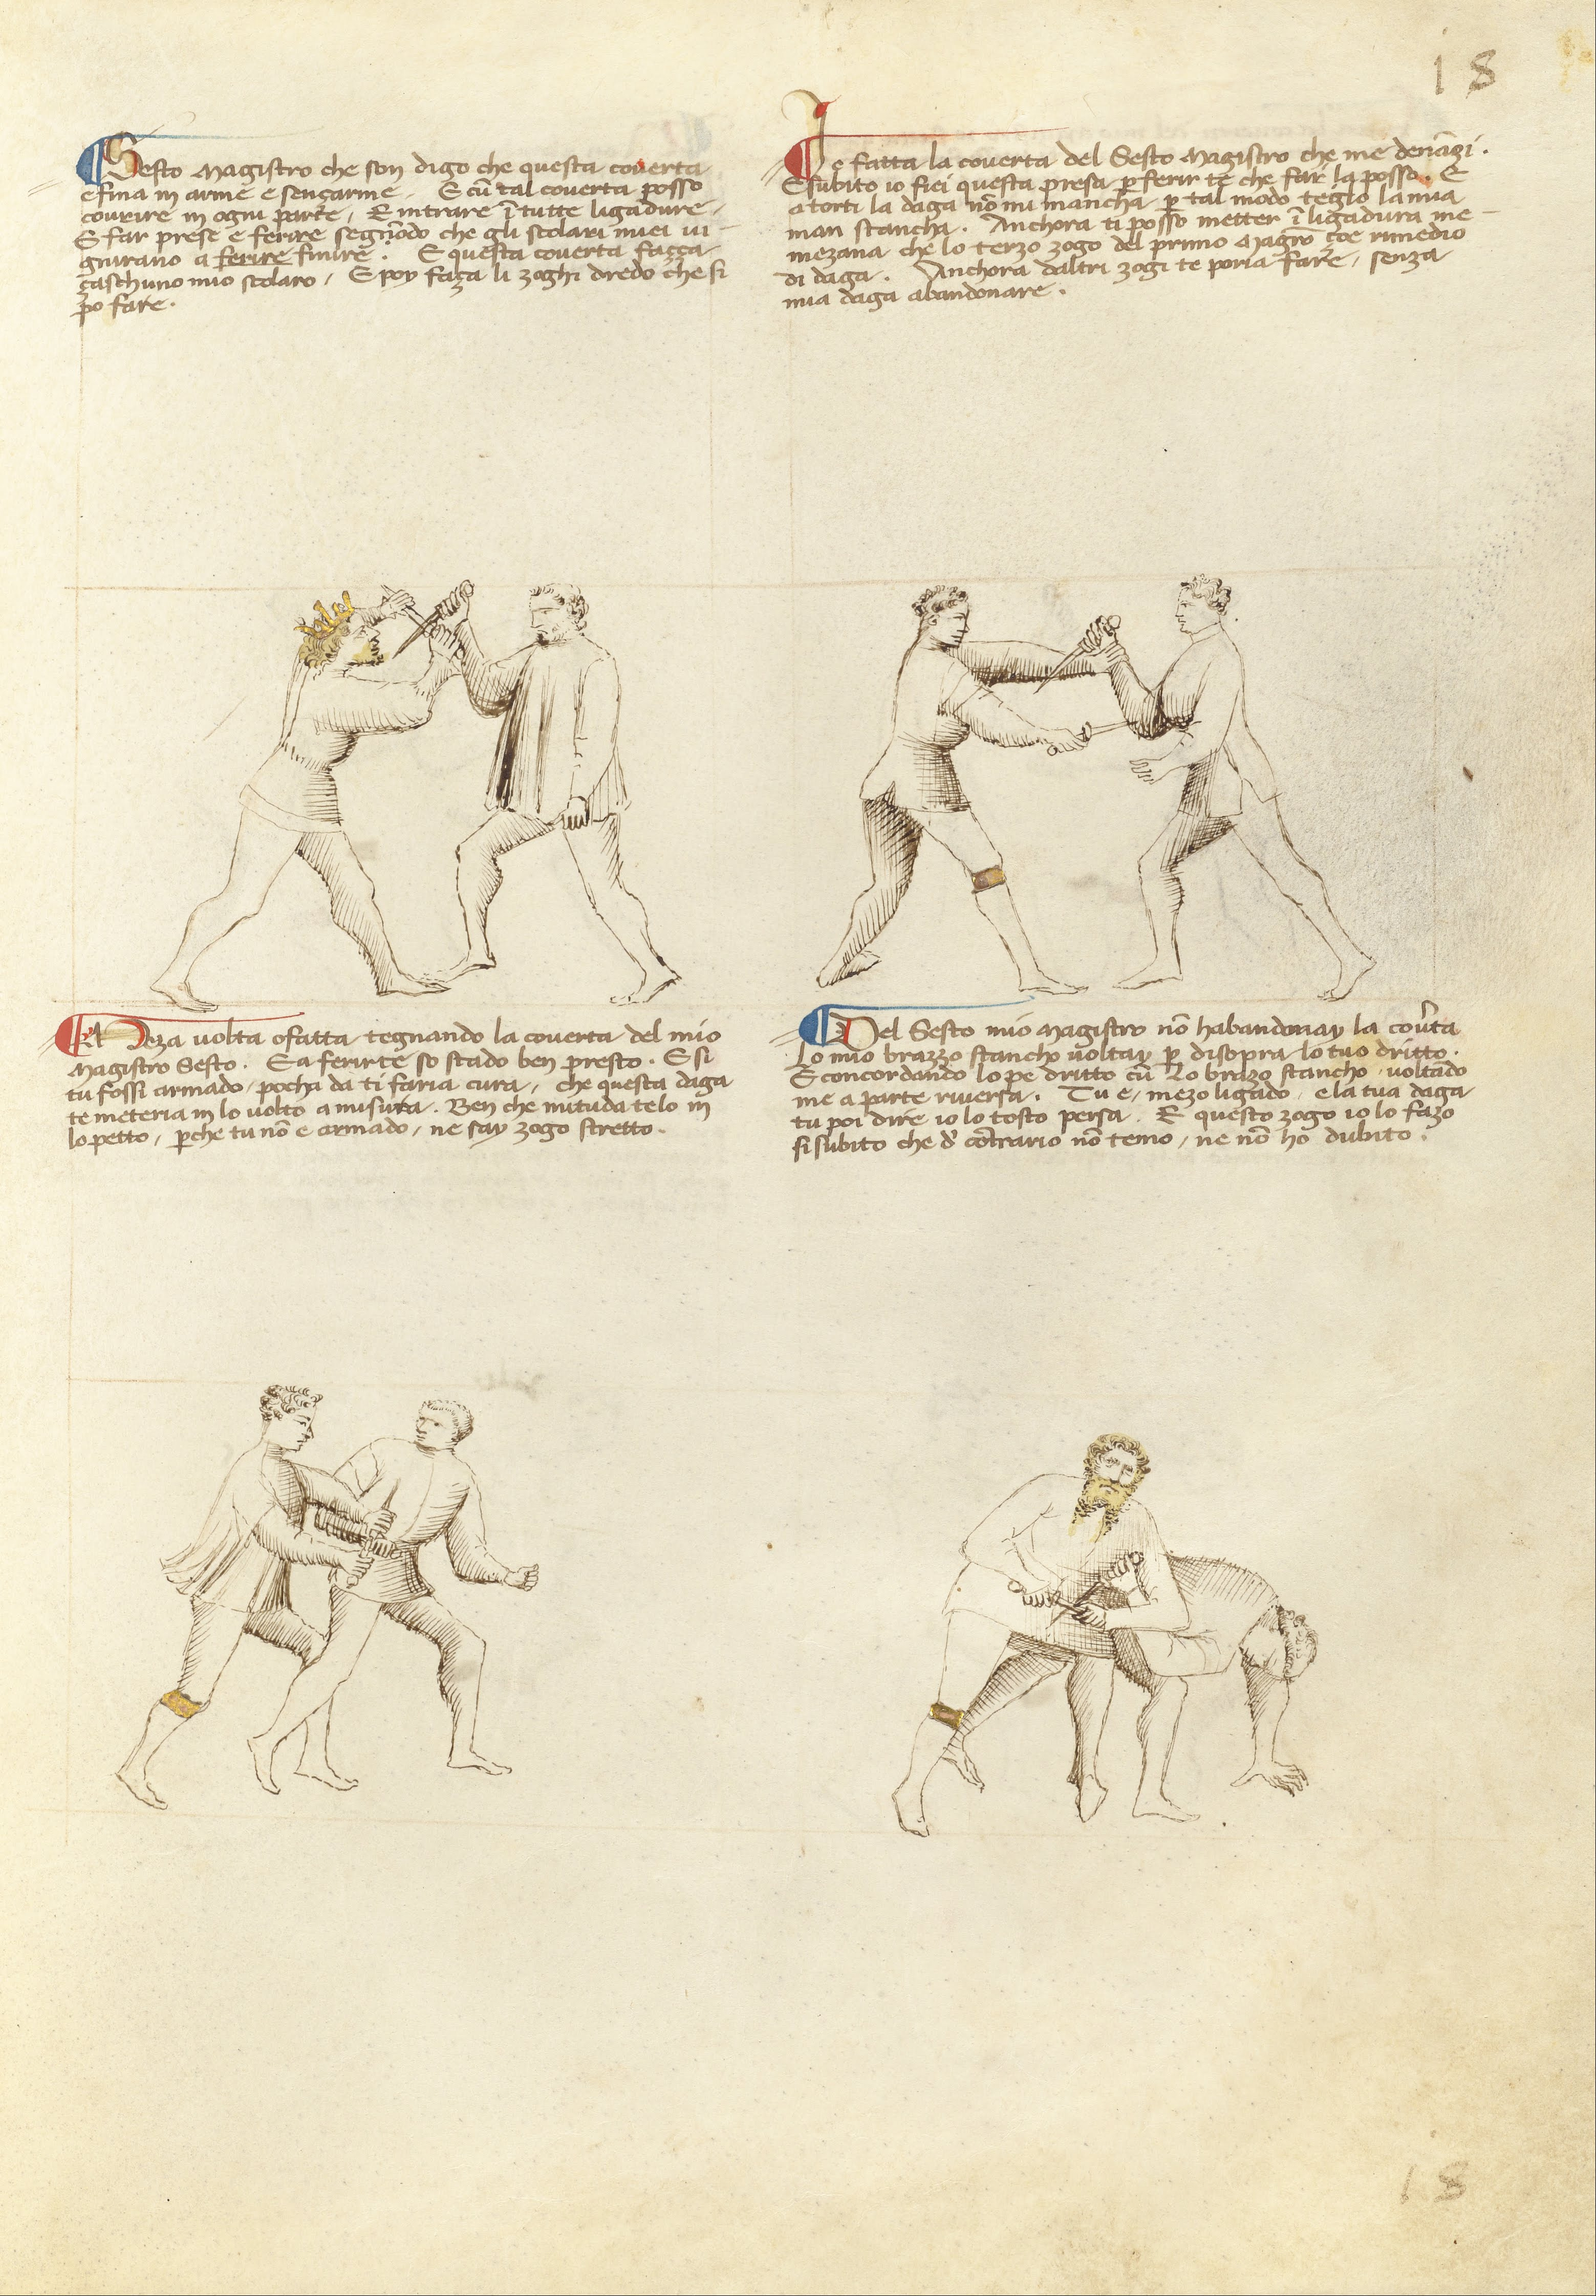 18
Sesto Magistro che son digo che questa coverta
e fina in arme e sençarme. E cũ tal coverta posso
covrire in ogni parte, E intrare ĩ tutte ligadure,
E far prese e ferire segõdo che gli scolari miei vi-
gnirano a ferire finire. E questa coverta fazza
çaschuno mio scolaro, E poy faza li zoghi dredo che si
pò fare.
Io fatta la coverta del Sesto Magistro che me denãçi.
E subito io fici questa presa p ferir te che far la posso. E
a torti la daga nõ mi mancha p tal modo tegno la mia
man stancha. Anchora ti posso metter ĩ ligadura me-
mezana che lo terzo zogo del primo Magrõ çoe rimedio
di daga. Anchora daltri zogi te poria fare, senza
mia daga abandonare.
Meza volta o fatta tegnando la coverta del mio
Magistro Sesto. E a ferirte so stado ben presto. E si
tu fossi armado, pocha da ti faria cura, che questa daga
te meteria in lo volto a misura. Ben che mituda telo in
lo petto, pche tu nõ e armado, ne say zogo stretto.
Del Sesto mio Magistro nõ habandonay la cov̉ta
Lo mio brazzo stancho voltay p disopra lo tuo dritto.
E concordando lo pe dritto cũ lo brazo stancho, voltãdo
me a parte riversa. Tu e, mezo ligado, e la tua daga
tu poi dire io lo tosto persa. E questo zogo io lo fazo
si subito che dl̉ cõtrario nõ temo, ne nõ ho dubito.
18